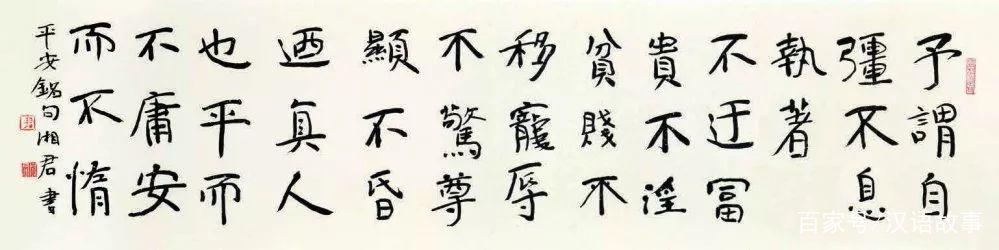 予謂自
彊不息
執著
不迂富
貴不淫
貧賤不
移寵辱
不驚尊
顯不昏
迺真人
也平而
不庸安
而不惰
平安銘句湘君書
百家号/汉语故事